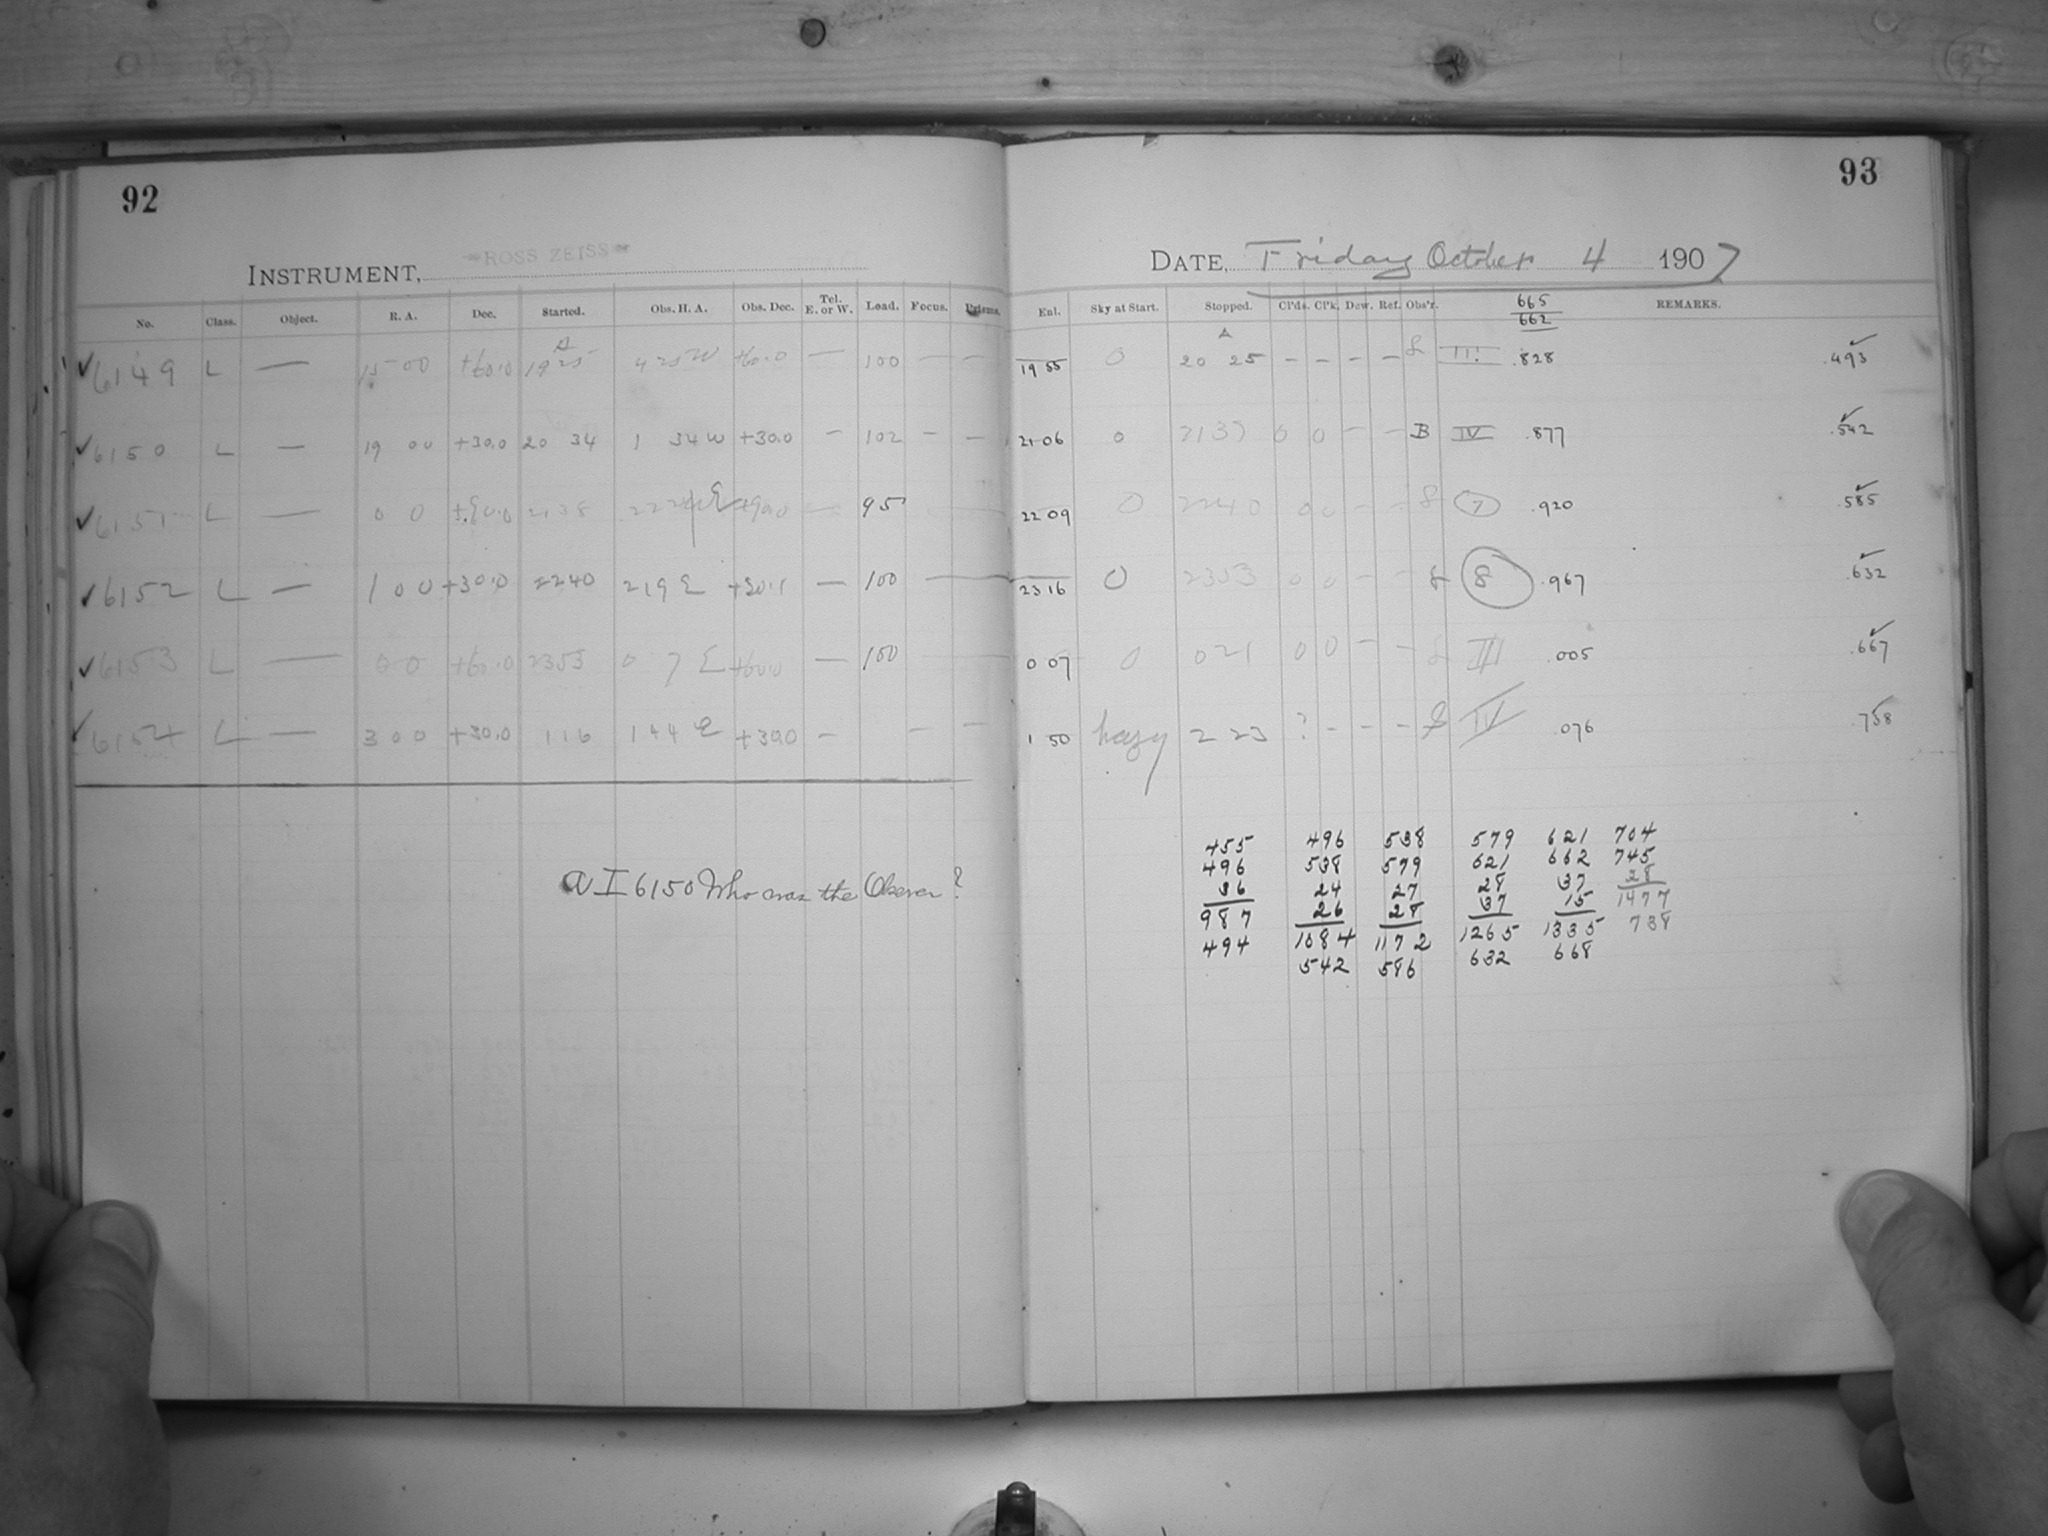 92
ROSS ZEISS
INSTRUMENT,
No. Class. Object. R. A. Dec. Started. Obs. H. A. Obs. Dec. Tel. E. or W. Load. Focus.
✓6149 L — 15 00 +60.0 19 25 4 25 W +60.0 — 100 — —
✓6150 L — 19 00 +30.0 20 34 1 34 W +30.0 — 102 — —
✓6151 L — 0 0 2138 — 95
✓6152 L — 1 00 +30.0 2240 219 E — 100 —
✓6153 L — 0 0 +60.0 2353 0 7 E +60.0 — 100
✓6154 L — 3 00 +30.0 116 144 E +30.0 — — —
a I 6150 Who was the Observer?
93
DATE, Friday October 4 1907
Enl. Sky at Start. Stopped. Cl'ds. Cl'k. Dew. Ref. Obs'r. REMARKS.
665
662
19 55 0 20 25 – – – – III .828 .493
21 06 0 2137 0 0 – – B IV .877 .542
22 09 0 2240 0 0 – – 7 .920 .585
23 16 0 2353 0 0 – – 8 .967 .632
0 07 0 021 0 0 – – III .005 .667
1 50 hazy 2 23 ? – – – IV .076 .758
455 496 538 579 621 704
496 538 579 621 662 745
36 24 27 28 37 28
987 26 28 37 15 1477
494 1084 1172 1265 1335 738
542 586 632 668